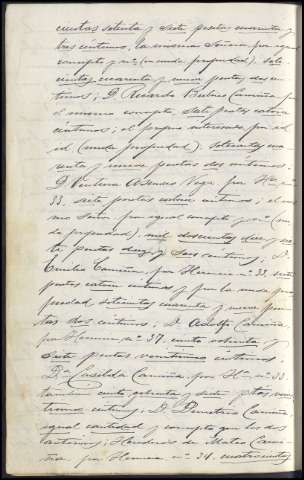 cientas setenta y siete pesetas cuarenta y
tres céntimos, la misma Señora por igual
concepto y nº (nuda propiedad), sete
cientas cuarenta y nueve pesetas dos cén
timos; D. Ricardo Camiña por
el mismo concepto, siete pesetas catorce
céntimos; el propio interesado por el
id (nuda propiedad). setecientas cua
renta y nueve pesetas dos céntimos.
D. Ventura Asensio Vega por Hª nº
33. siete pesetas catorce céntimos; el mis
mo Señor por igual concepto y nº (nu
da propiedad), mil doscientas diez y sie
te pesetas diez y seis céntimos; D.
Emilio Camiña, por Herencia nº 33. siete
pesetas catorce céntimos y por la nuda pro
piedad, setecientas cuarenta y nueve pese
tas dos céntimos. D. Adolfo Camiña,
por Herencia nº 37. ciento ochenta y
siete pesetas céntimos.
Dª Casilda Camiña por Hª nº 33
también ciento ochenta y siete ptas
céntimos; D. Demetrio Camiña,
igual cantidad y concepto que los dos
anteriores; Herederos de Mateo Cami
ña por Herencia nº 34. cuatrocientas